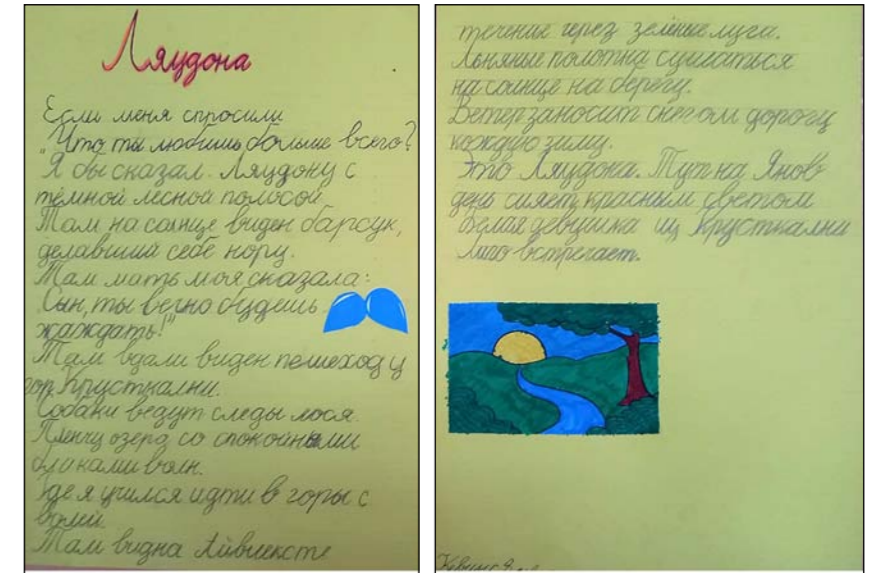 Ляудона
Если меня спросили
"Что ты любишь больше всего?
Я бы сказал: Ляудону с
тёмной лесной полосой.
Там на солнце виден барсук,
делавший себе нору.
Там мать моя сказала:
"Сын, ты вечно будешь
жаждать!"
Там вдали виден пешеход у
гор Крусткални.
Собаки ведут следы лося.
озера со спокойными
бликами волн.
Где я учился идти в горы с
Там видна Айвиексте
течение через зелёные луга.
Льняные полотна сушаться
на солнце на берегу.
Ветер заносит снегом дорогу
каждую зиму.
Это Ляудона. Тут на Янов
день сияет красным цветом
Белая девушка из Крусткални
встречает.